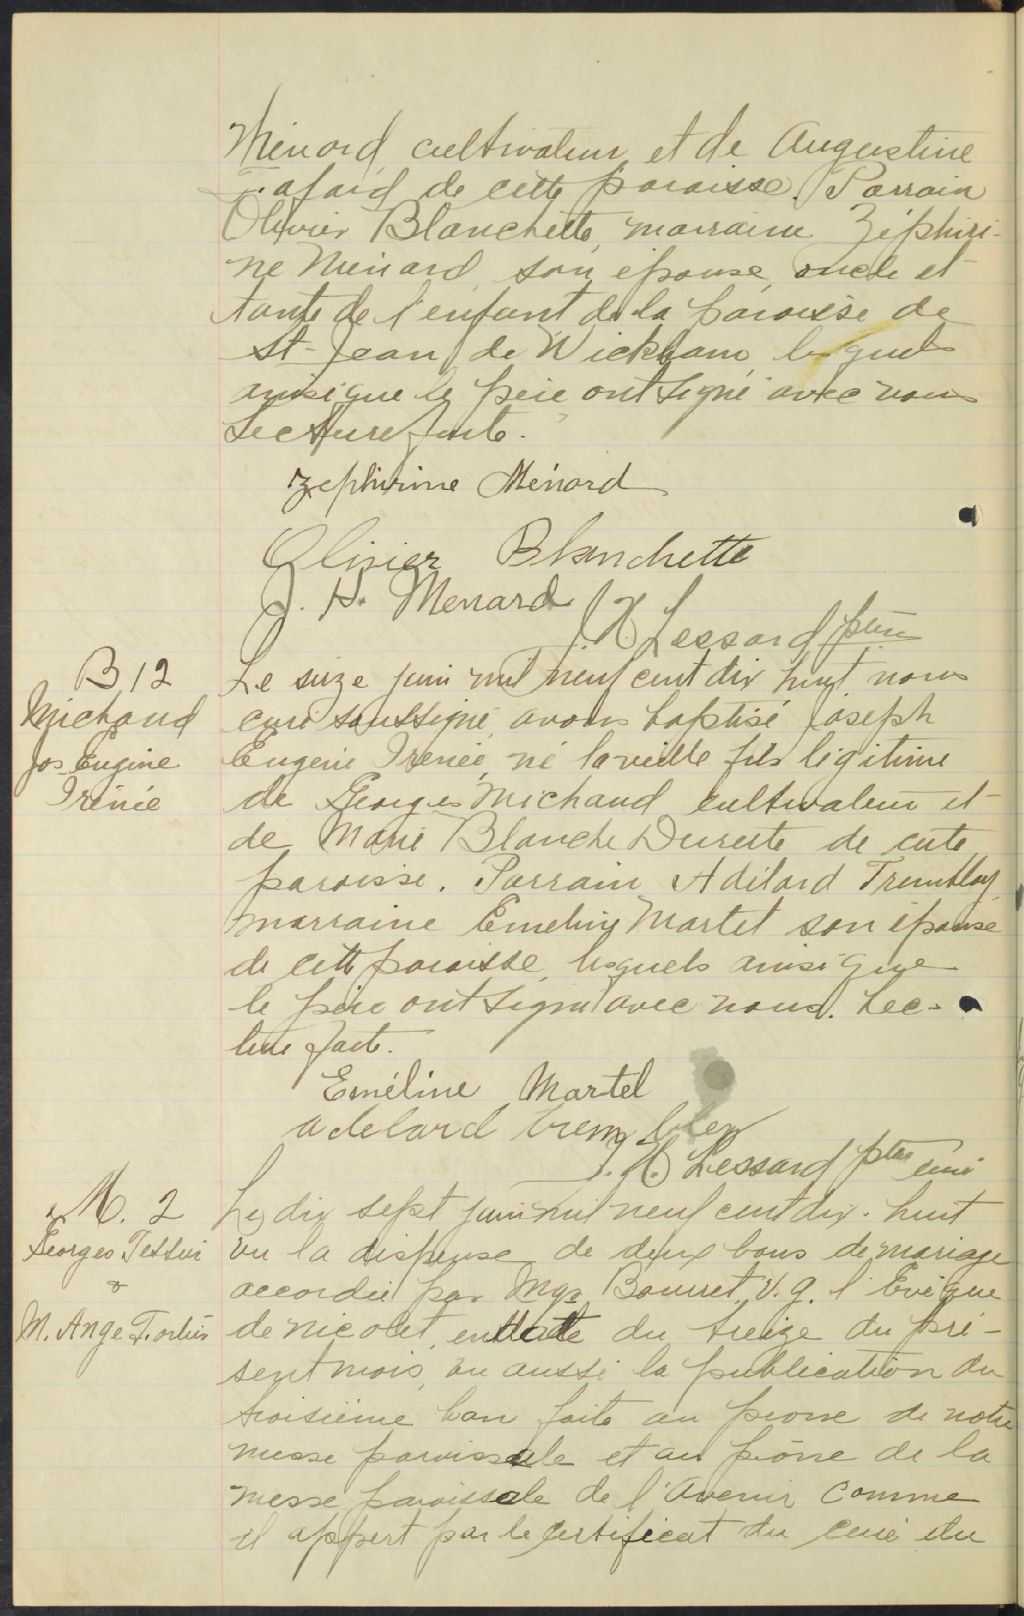 Ménard cultivateur et de Augustine
Lafard de cette paroisse. Parrain
Olivier Blanchette, marraine Zéphiri-
ne Ménard son épouse, oncle et
tante de l'enfant de la paroisse de
St-Jean de Wickham lesquels
ainsi que le père ont signé avec nous
Lecture faite.
Zephirine Ménard
Olivier Blanchette
J. H. Menard
J. H. Lessard ptre
B 12
Michaud
Jos Eugène
Irénée
Le seize juin mil neuf cent dix huit nous
curé soussigné avons baptisé Joseph
Eugène Irénée, né la veille fils légitime
de Georges Michaud cultivateur et
de Marie Blanche de cette
paroisse. Parrain Adélard Tremblay
marraine Emeline Martel son épouse
de cette paroisse, lesquels ainsi que
le père ont signé avec nous. Lec-
ture faite.
Eméline Martel
adelard tremblay
J. H. Lessard ptre curé
M. 2
Georges Tessier
&
M. Ange Fortier
Le dix sept juin mil neuf cent dix-huit
vu la dispense de deux bans de mariage
accordée par Mgr V. g. l'Evêque
de Nicolet, en date du treize du pré-
sent mois, vu aussi la publication du
troisième ban faite au prone de notre
messe paroissale et au prône de la
messe paroissale de l'Avenir comme
il appert par le certificat du curé du